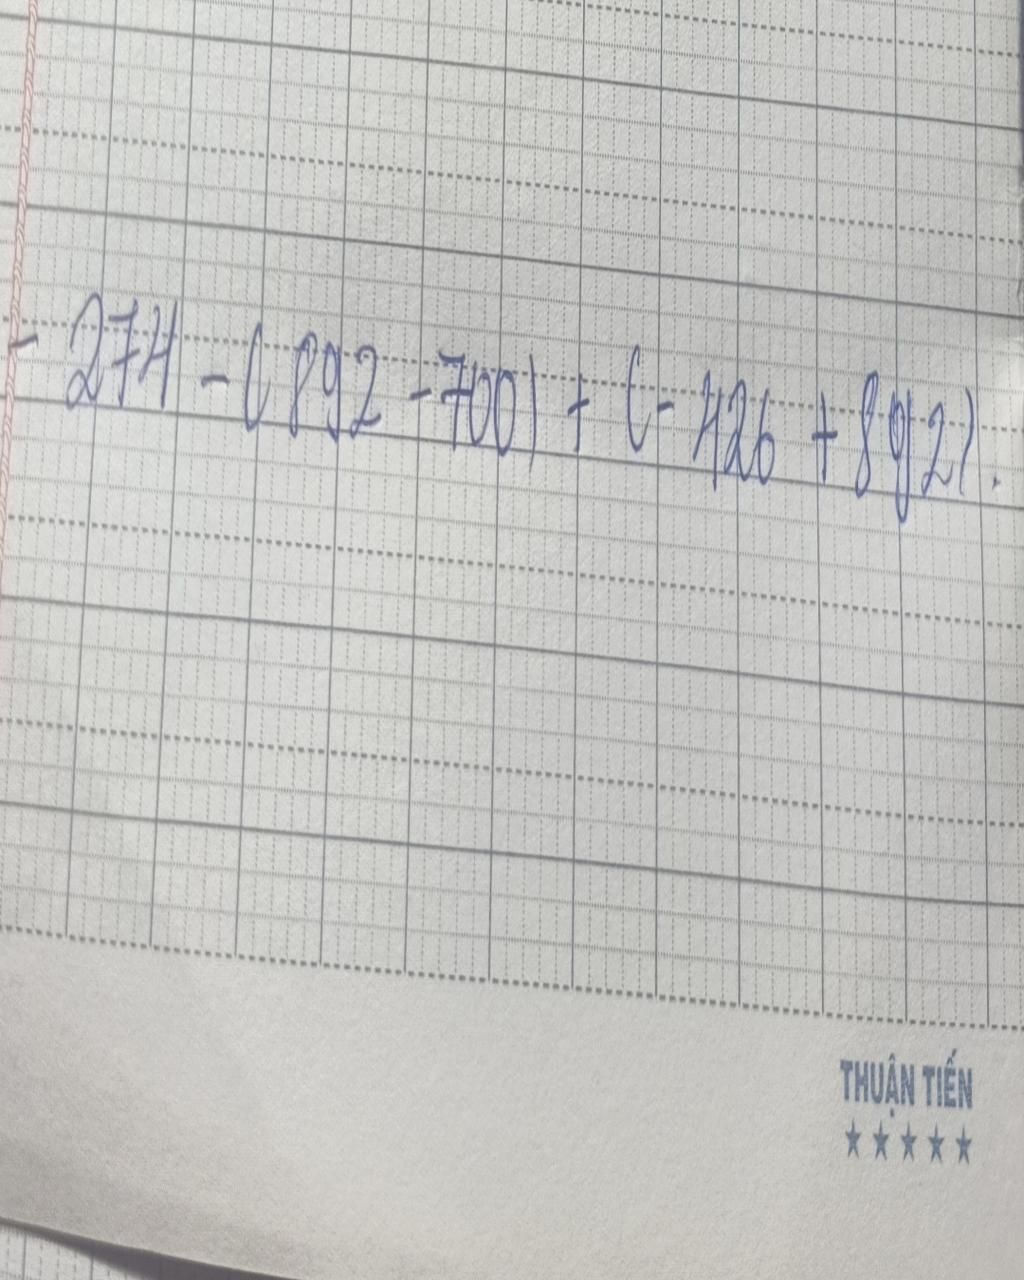 - 274 - ( 892 - 700) + (- 426 + 892).
THUẬN TIẾN
★★★★★